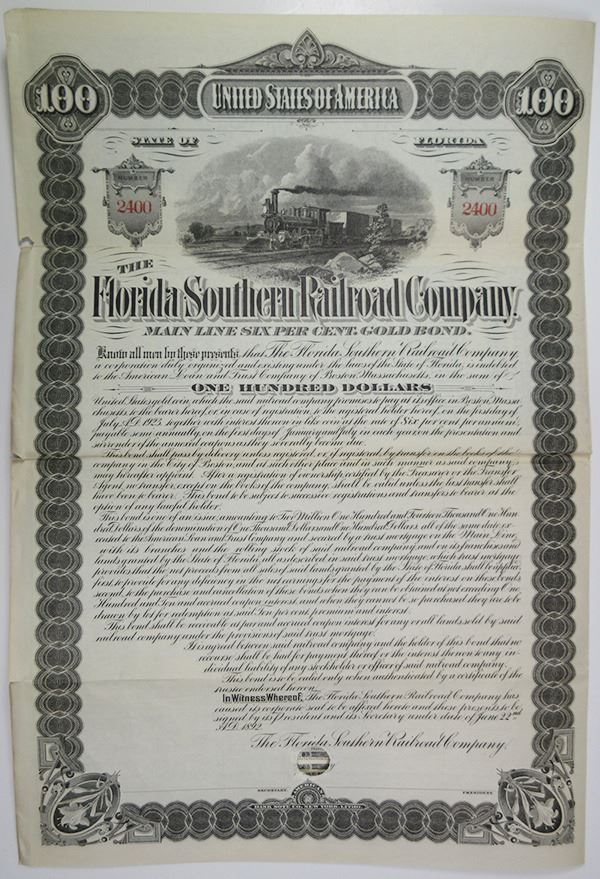 100
UNITED STATES OF AMERICA
100
STATE OF FLORIDA
NUMBER
2400
NUMBER
2400
THE
Florida Southern Railroad Company.
MAIN LINE SIX PER CENT. GOLD BOND.
Know all men by these presents, that The Florida Southern Railroad Company,
a corporation duly organized and existing under the laws of the State of Florida, is indebted
to the American Loan and Trust Company of Boston, Massachusetts, in the sum of
ONE HUNDRED DOLLARS
United States gold coin, which the said railroad company promises to pay at its office in Boston, Massa-
chusetts, to the bearer hereof, or, in case of registration, to the registered holder hereof, on the first day of
July, A.D. 1923, together with interest thereon in like coin at the rate of Six per cent per annum,
payable semi-annually, on the first days of January and July in each year, on the presentation and
surrender of the annexed coupons as they severally become due.
This bond shall pass by delivery unless registered, or if registered, by transfer on the books of the
company in the City of Boston, and at such other place and in such manner as said company
may hereafter appoint. After a registration of ownership certified by the Treasurer or the Transfer
Agent, no transfer, except on the books of the company, shall be valid unless the last transfer shall
have been to bearer. This bond to be subject to successive registrations and transfers to bearer at the
option of any lawful holder.
This bond is one of an issue, amounting to Two Million One Hundred and Fourteen Thousand One Hun-
dred Dollars of the denomination of One Thousand Dollars and One Hundred Dollars, all of the same date, ex-
ecuted to the American Loan and Trust Company and secured by a trust mortgage on the Main Line,
with its branches and the rolling stock of said railroad company, and on its franchises and
lands granted by the State of Florida, all as described in said trust mortgage, which trust mortgage
provides that the net proceeds from all sales of said lands granted by the State of Florida, shall be applied,
first, to provide for any deficiency in the net earnings for the payment of the interest on these bonds,
second, to the purchase and cancellation of these bonds when they can be obtained at not exceeding One
Hundred and Ten and accrued coupon interest, and when they cannot be so purchased they are to be
drawn by lot for redemption at said ten per cent. premium and interest.
This bond shall be receivable at par and accrued coupon interest for any or all lands sold by said
railroad company under the provisions of said trust mortgage.
It is agreed between said railroad company and the holder of this bond that no
recourse shall be had for payment thereof, or the interest thereon to any in-
dividual liability of any stockholder or officer of said railroad company.
This bond is to be valid only when authenticated by a certificate of the
trustee endorsed hereon.
In Witness Whereof, The Florida Southern Railroad Company has
caused its corporate seal to be affixed hereto and these presents to be
signed by its President and its Secretary under date of June 22nd
A.D. 1892.
The Florida Southern Railroad Company.
SECRETARY.
PRESIDENT.
AMERICAN
BANK NOTE CO. NEW YORK, LITHO.